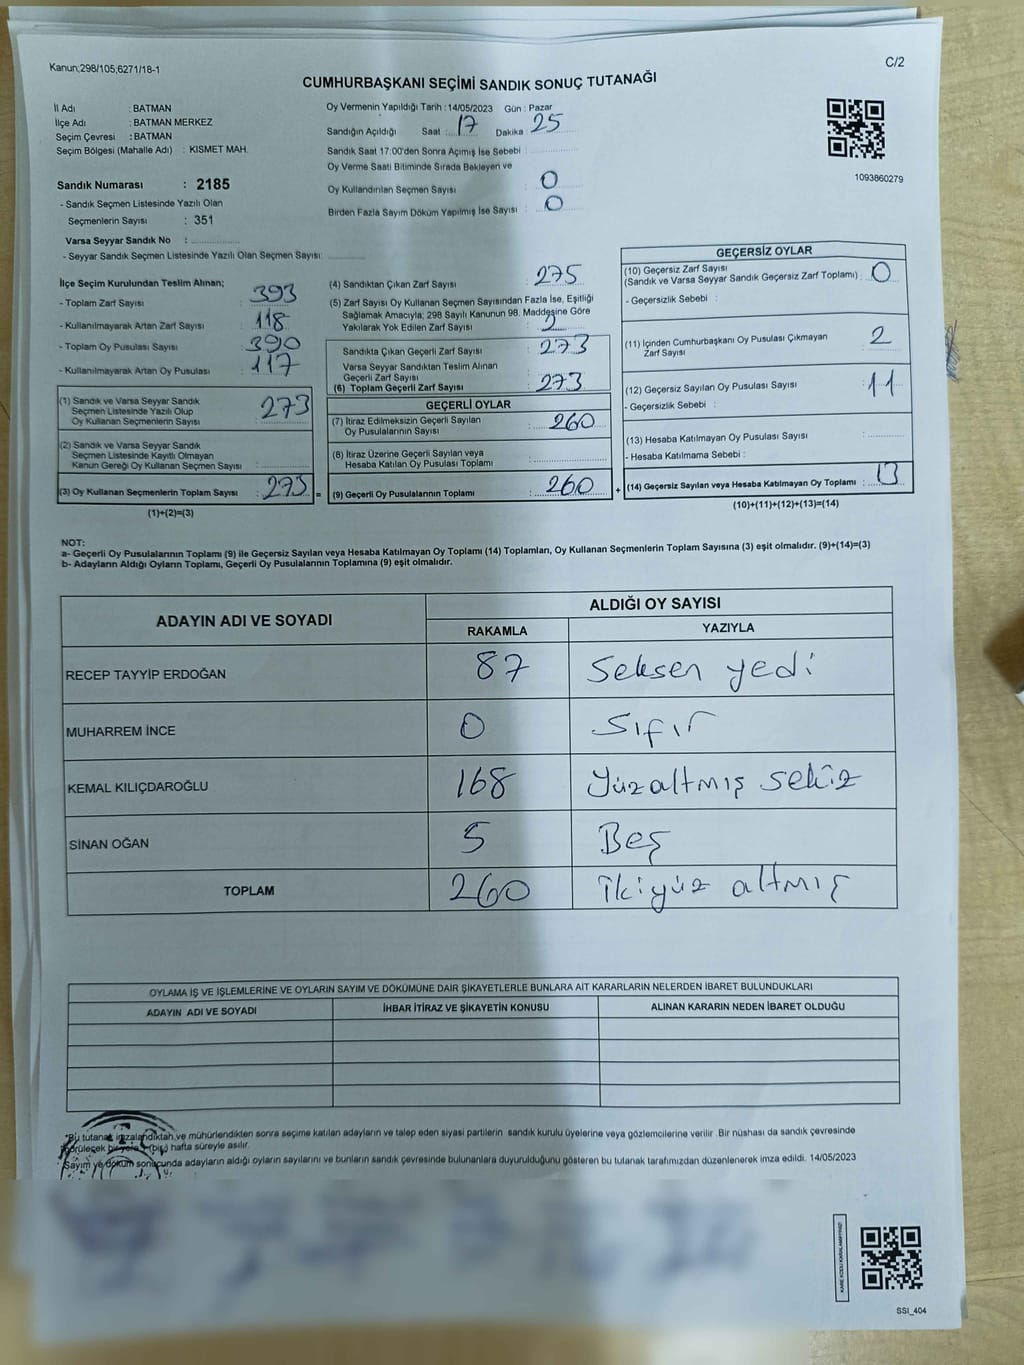 Kanun;298/105,6271/18-1
C/2
CUMHURBAŞKANI SEÇİMİ SANDIK SONUÇ TUTANAĞI
İl Adı : BATMAN
İlçe Adı : BATMAN MERKEZ
Seçim Çevresi : BATMAN
Seçim Bölgesi (Mahalle Adı) : KISMET MAH.
Oy Vermenin Yapıldığı Tarih : 14/05/2023 Gün : Pazar
Sandığın Açıldığı Saat : 17 Dakika : 25
Sandık Saat 17:00'den Sonra Açımış İse Sebebi :
Oy Verme Saati Bitiminde Sırada Bekleyen ve
Oy Kullandırılan Seçmen Sayısı : 0
Birden Fazla Sayım Döküm Yapılmış İse Sayısı : 0
1093860279
Sandık Numarası : 2185
- Sandık Seçmen Listesinde Yazılı Olan
Seçmenlerin Sayısı : 351
Varsa Seyyar Sandık No :
- Seyyar Sandık Seçmen Listesinde Yazılı Olan Seçmen Sayısı:
İlçe Seçim Kurulundan Teslim Alınan;
- Toplam Zarf Sayısı : 393
- Kullanılmayarak Artan Zarf Sayısı : 118
- Toplam Oy Pusulası Sayısı : 390
- Kullanılmayarak Artan Oy Pusulası : 117
(1) Sandık ve Varsa Seyyar Sandık
Seçmen Listesinde Yazılı Olup
Oy Kullanan Seçmenlerin Sayısı : 273
(2) Sandık ve Varsa Seyyar Sandık
Seçmen Listesinde Kayıtlı Olmayan
Kanun Gereği Oy Kullanan Seçmen Sayısı :
(3) Oy Kullanan Seçmenlerin Toplam Sayısı : 273 =
(1)+(2)=(3)
(4) Sandıktan Çıkan Zarf Sayısı : 275
(5) Zarf Sayısı Oy Kullanan Seçmen Sayısından Fazla İse, Eşitliği
Sağlamak Amacıyla; 298 Sayılı Kanunun 98. Maddesine Göre
Yakılarak Yok Edilen Zarf Sayısı : 2
Sandıkta Çıkan Geçerli Zarf Sayısı : 273
Varsa Seyyar Sandıktan Teslim Alınan
Geçerli Zarf Sayısı :
(6) Toplam Geçerli Zarf Sayısı : 273
GEÇERLİ OYLAR
(7) İtiraz Edilmeksizin Geçerli Sayılan
Oy Pusulalarının Sayısı : 260
(8) İtiraz Üzerine Geçerli Sayılan veya
Hesaba Katılan Oy Pusulası Toplamı :
(9) Geçerli Oy Pusulalarının Toplamı : 260 +
GEÇERSİZ OYLAR
(10) Geçersiz Zarf Sayısı
(Sandık ve Varsa Seyyar Sandık Geçersiz Zarf Toplamı) : 0
- Geçersizlik Sebebi :
(11) İçinden Cumhurbaşkanı Oy Pusulası Çıkmayan
Zarf Sayısı : 2
(12) Geçersiz Sayılan Oy Pusulası Sayısı : 11
- Geçersizlik Sebebi :
(13) Hesaba Katılmayan Oy Pusulası Sayısı :
- Hesaba Katılmama Sebebi :
(14) Geçersiz Sayılan veya Hesaba Katılmayan Oy Toplamı : 13
(10)+(11)+(12)+(13)=(14)
NOT:
a- Geçerli Oy Pusulalarının Toplamı (9) ile Geçersiz Sayılan veya Hesaba Katılmayan Oy Toplamı (14) Toplamları, Oy Kullanan Seçmenlerin Toplam Sayısına (3) eşit olmalıdır. (9)+(14)=(3)
b- Adayların Aldığı Oyların Toplamı, Geçerli Oy Pusulalarının Toplamına (9) eşit olmalıdır.
ADAYIN ADI VE SOYADI ALDIĞI OY SAYISI
RAKAMLA YAZIYLA
RECEP TAYYİP ERDOĞAN 87 Seksen yedi
MUHARREM İNCE 0 Sıfır
KEMAL KILIÇDAROĞLU 168 Yüzaltmış sekiz
SİNAN OĞAN 5 Beş
TOPLAM 260 İkiyüz altmış
OYLAMA İŞ VE İŞLEMLERİNE VE OYLARIN SAYIM VE DÖKÜMÜNE DAİR ŞİKAYETLERLE BUNLARA AİT KARARLARIN NELERDEN İBARET BULUNDUKLARI
ADAYIN ADI VE SOYADI İHBAR İTİRAZ VE ŞİKAYETİN KONUSU ALINAN KARARIN NEDEN İBARET OLDUĞU
*Bu tutanak imzalandıktan ve mühürlendikten sonra seçime katılan adayların ve talep eden siyasi partilerin sandık kurulu üyelerine veya gözlemcilerine verilir. Bir nüshası da sandık çevresinde
görülecek bir yere (bir) hafta süreyle asılır.
* Sayım ve döküm sonucunda adayların aldığı oyların sayılarını ve bunların sandık çevresinde bulunanlara duyurulduğunu gösteren bu tutanak tarafımızdan düzenlenerek imza edildi. 14/05/2023
KARE KODU KARALAMAYINIZ!
SSI_404